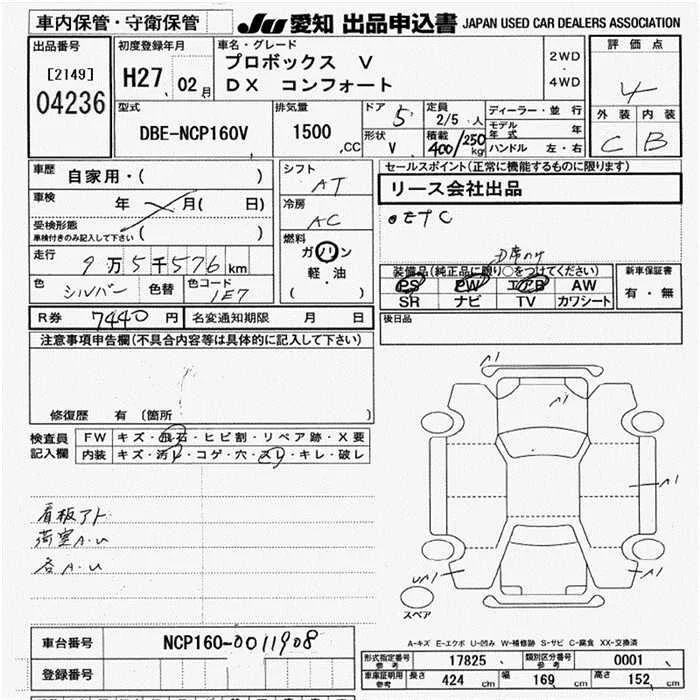 車内保管・守衛保管
JU 愛知 出品申込書 JAPAN USED CAR DEALERS ASSOCIATION
出品番号
[2149]
04236
初度登録年月
H27. 02 月
車名・グレード
プロボックス V
DX コンフォート
2WD
・
4WD
評価点
4
外装 内装
C B
型式
DBE-NCP160V
排気量
1500 .CC
ドア 5
形状 V
定員 2/5 人
積載 400/250 kg
ディーラー・並行
モデル年式 年
ハンドル 左・右
車歴 自家用・( )
車検 年 月( 日)
受検形態
車検付きのみ記入して下さい ( )
走行 9万5千576 km
色 シルバー 色替 色コード 1E7
シフト AT
冷房 AC
燃料
ガソリン
軽・油
( )
セールスポイント(正常に機能するものに限ります)
リース会社出品
●ETC
装備品(純正品に限り○をつけてください)
PS PW エアB AW
SR ナビ TV カワシート
新車保証書
有・無
R券 7440 円 名変通知期限 月 日
後日品
注意事項申告欄(不具合内容等は具体的に記入して下さい)
修復歴 有 〔箇所 〕
検査員
記入欄
FW キズ・飛石・ヒビ割・リペア跡・X要
内装 キズ・汚レ・コゲ・穴・スレ・キレ・破レ
看板アト
荷室A.U
各A.U
A1
A1
A1
UA1
A1
スペア
A-キズ E-エクボ U-凹み W-補修跡 S-サビ C-腐食 XX-交換済
車台番号 NCP160-0011908
登録番号
形式指定番号 参考 17825 類別区分番号 参考 0001
車庫証明用 参考 長さ 424 cm 幅 169 cm 高さ 152 cm